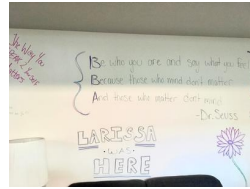 The Way You
Be who you are and say what you feel
Because those who mind don't matter
And those who matter don't mind
-Dr. Seuss
LARISSA
WAS
HERE